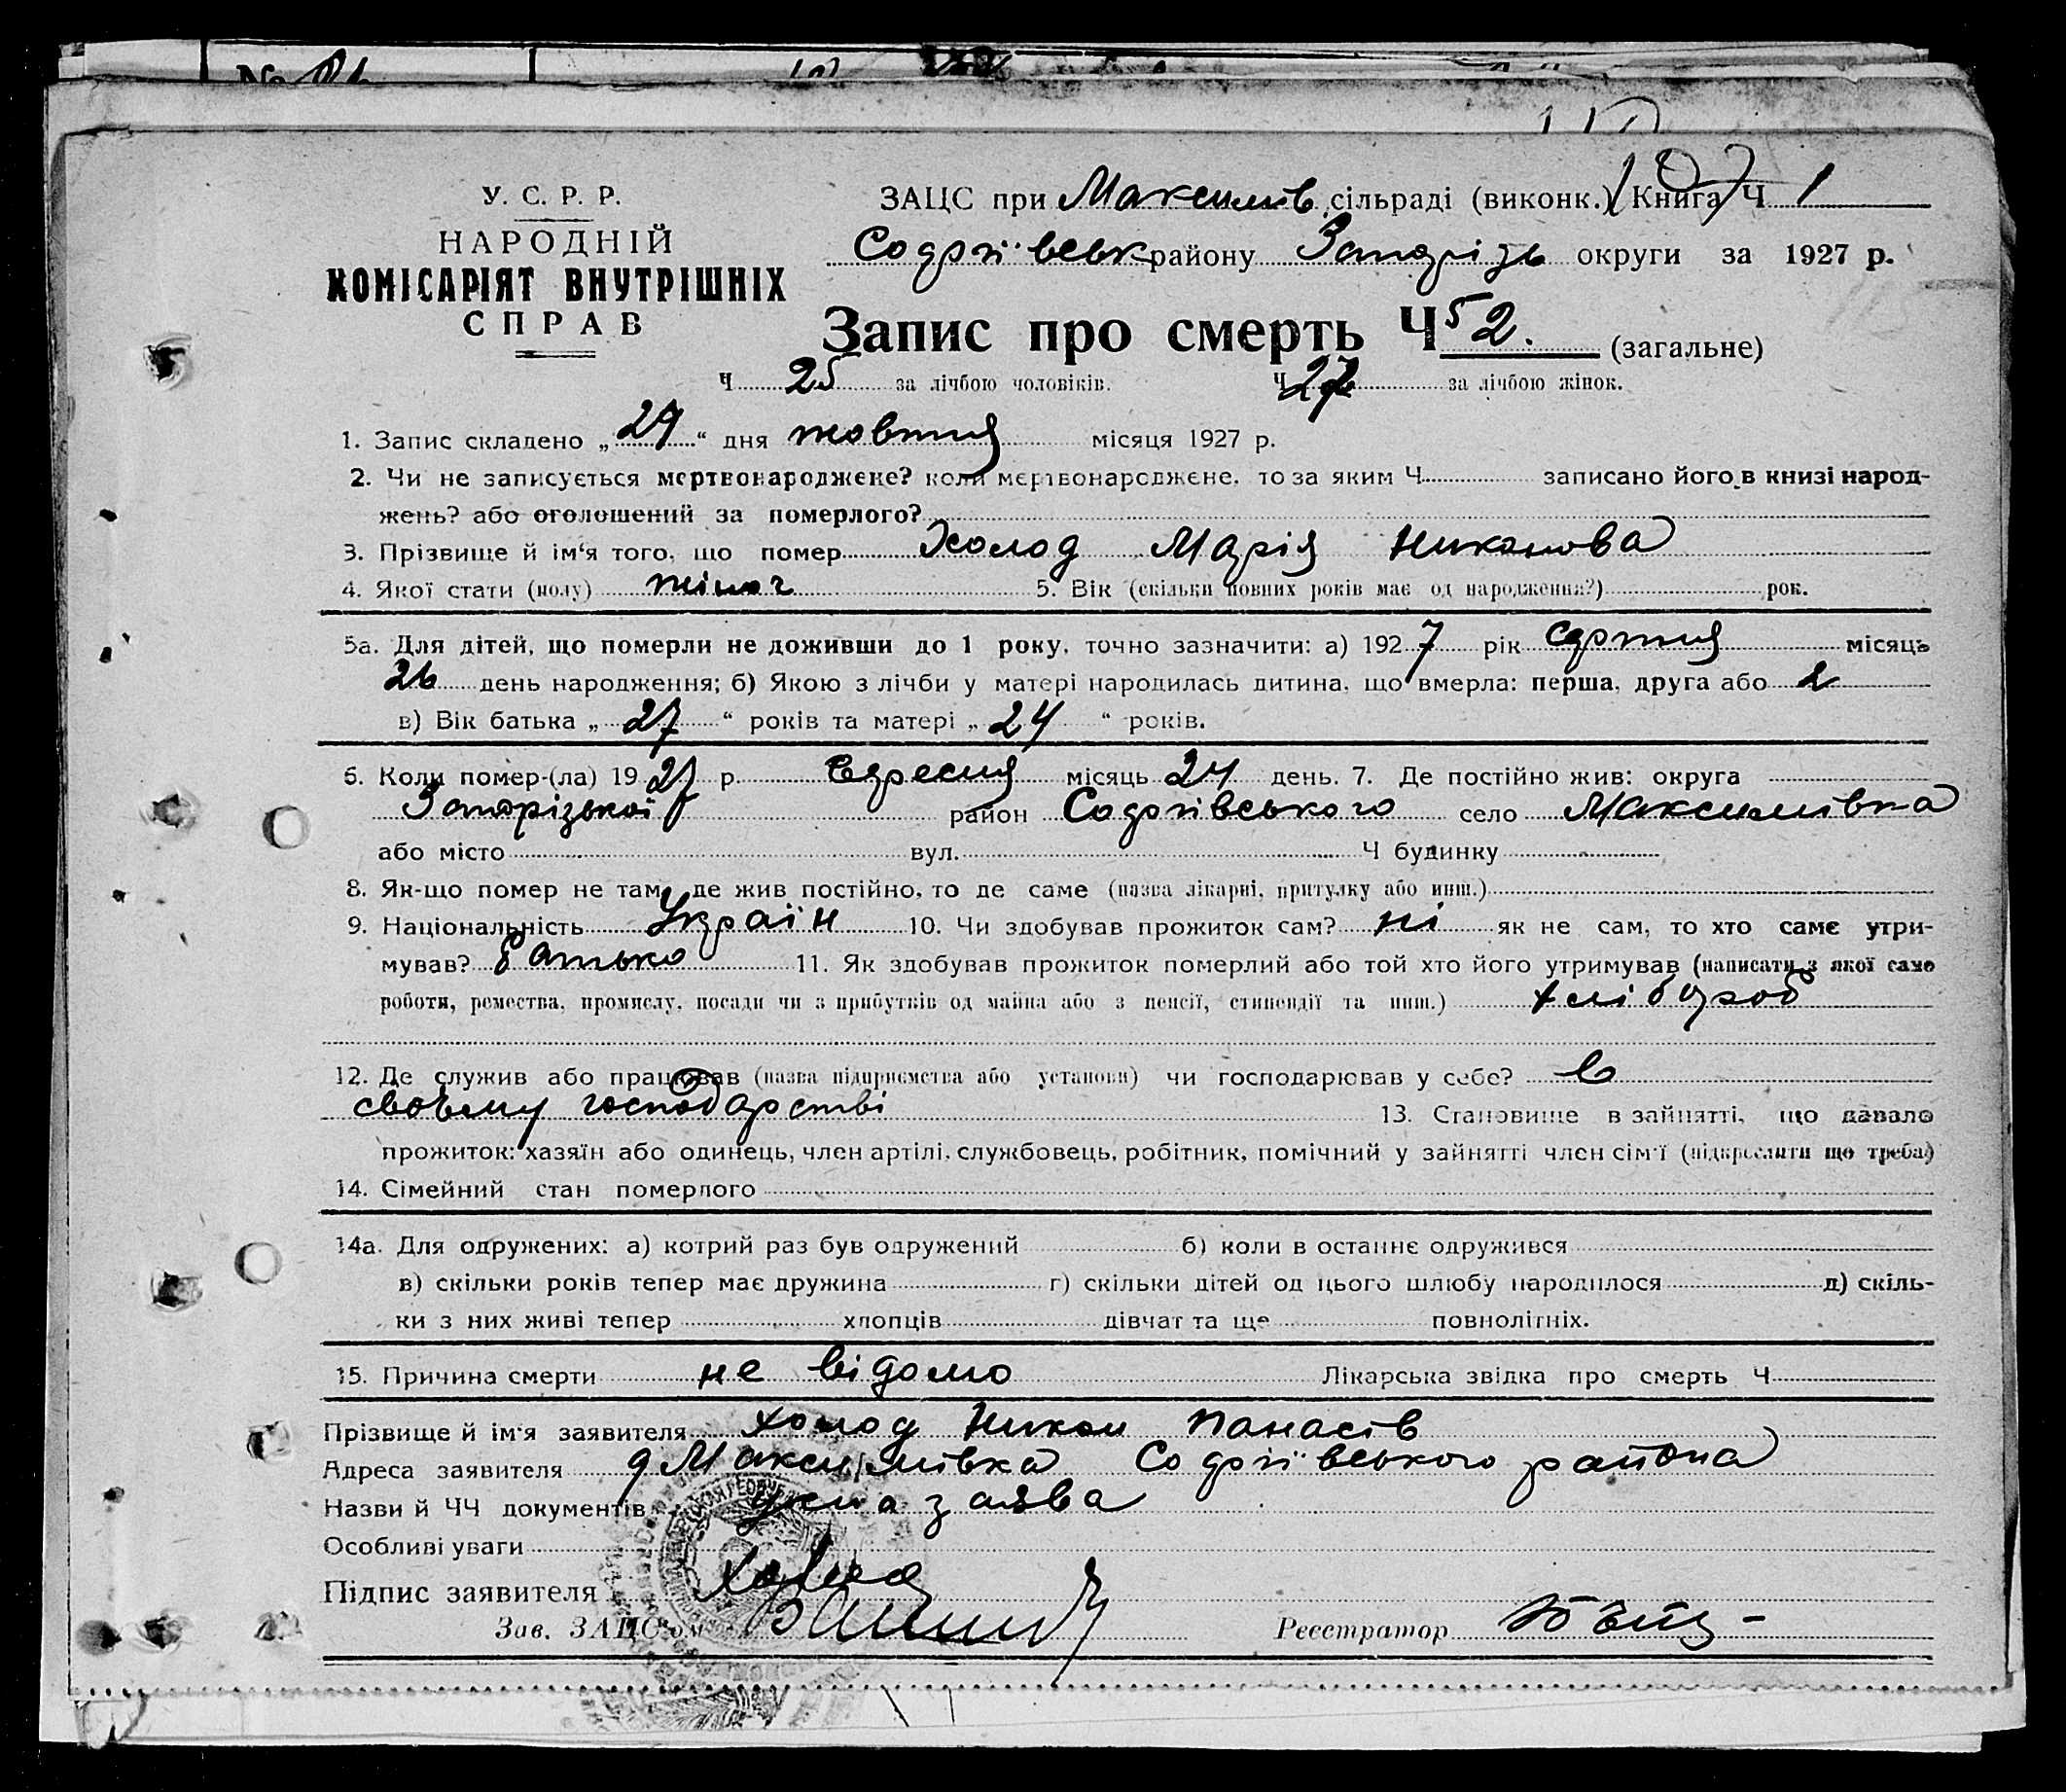 У. С. Р. Р.
НАРОДНІЙ
КОМІСАРІЯТ ВНУТРІШНІХ
СПРАВ
107
ЗАЦС при Максимів сільраді (виконк.) Книга Ч 1
Софіївськ району Запоріз округи за 1927 р.
Запис про смерть Ч 52. (загальне)
Ч 25 за лічбою чоловіків. Ч 27 за лічбою жінок.
1. Запис складено „ 29 “ дня жовтня місяця 1927 р.
2. Чи не записується мертвонароджене? коли мертвонароджене, то за яким Ч записано його в книзі народ-
жень? або оголошений за померлого?
3. Прізвище й ім‘я того, що помер Холод Марія Никонова
4. Якої стати (полу) жіноч 5. Вік (скільки повних років має од народження?) рок.
5а. Для дітей, що померли не доживши до 1 року, точно зазначити: а) 192 7 рік серпня місяць
26 день народження; б) Якою з лічби у матері народилась дитина, що вмерла: перша, друга або 2
в) Вік батька „ 27 “ років та матері „ 24 “ років.
6. Коли помер-(ла) 19 27 р. вересня місяць 24 день. 7. Де постійно жив: округа
Запорізької район Софіївського село Максимівка
або місто вул. Ч будинку
8. Як-що помер не там, де жив постійно, то де саме (назва лікарні, притулку або инш.)
9. Національність Україн 10. Чи здобував прожиток сам? ні як не сам, то хто саме утри-
мував? батько 11. Як здобував прожиток померлий або той хто його утримував (написати з якої само
роботи, ремества, промислу, посади чи з прибутків од майна або з пенсії, стипендії та инш.) хлібороб
12. Де служив або працював (назва підприємства або установи) чи господарював у себе? в
своєму господарстві 13. Становище в зайнятті, що давало
прожиток: хазяїн або одинець, член артілі, службовець, робітник, помічний у зайнятті член сім‘ї (підкреслити що треба)
14. Сімейний стан померлого
14а. Для одружених: а) котрий раз був одружений б) коли в останнє одружився
в) скільки років тепер має дружина г) скільки дітей од цього шлюбу народилося д) скіль-
ки з них живі тепер хлопців дівчат та ще повнолітніх.
15. Причина смерти не відомо Лікарська звідка про смерть Ч
Прізвище й ім‘я заявителя Холод Никон Панасів
Адреса заявителя Максимівка Софіївського района
Назви й ЧЧ документів заява
Особливі уваги
Підпис заявителя Холод
Зав. ЗАЦС‘ом Реєстратор